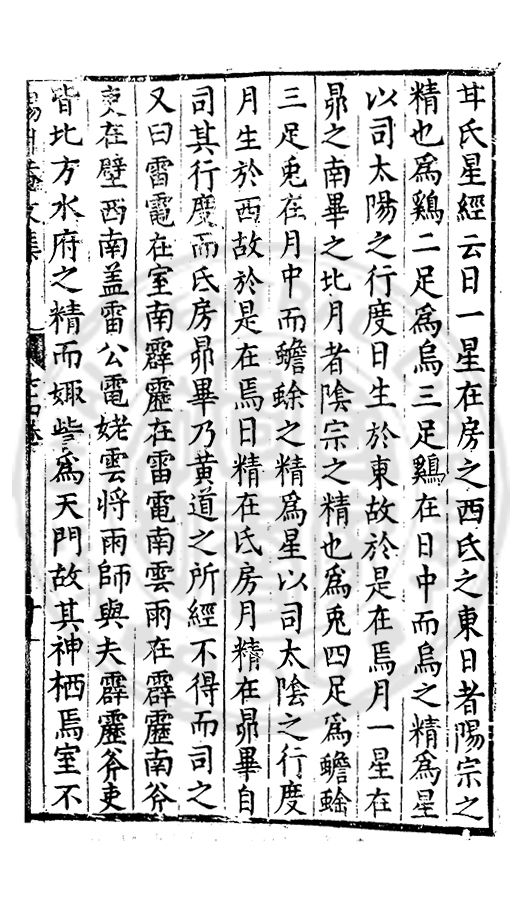 甘氏星經云日一星在房之西氐之東日者陽宗之
精也爲鷄二足爲烏三足鷄在日中而烏之精爲星
以司太陽之行度日生於東故於是在焉月一星在
昴之南畢之北月者陰宗之精也爲兎四足爲蟾蜍
三足兎在月中而蟾蜍之精爲星以司太陰之行度
月生於西故於是在焉日精在氐房月精在昴畢自
司其行度而氐房昴畢乃黄道之所經不得而司之
又曰雷電在室南霹靂在雷電南雲雨在霹靂南斧
吏在壁西南盖雷公電姥雲將雨師與夫霹靂斧吏
皆北方水府之精而娵訾爲天門故其神栖焉室不